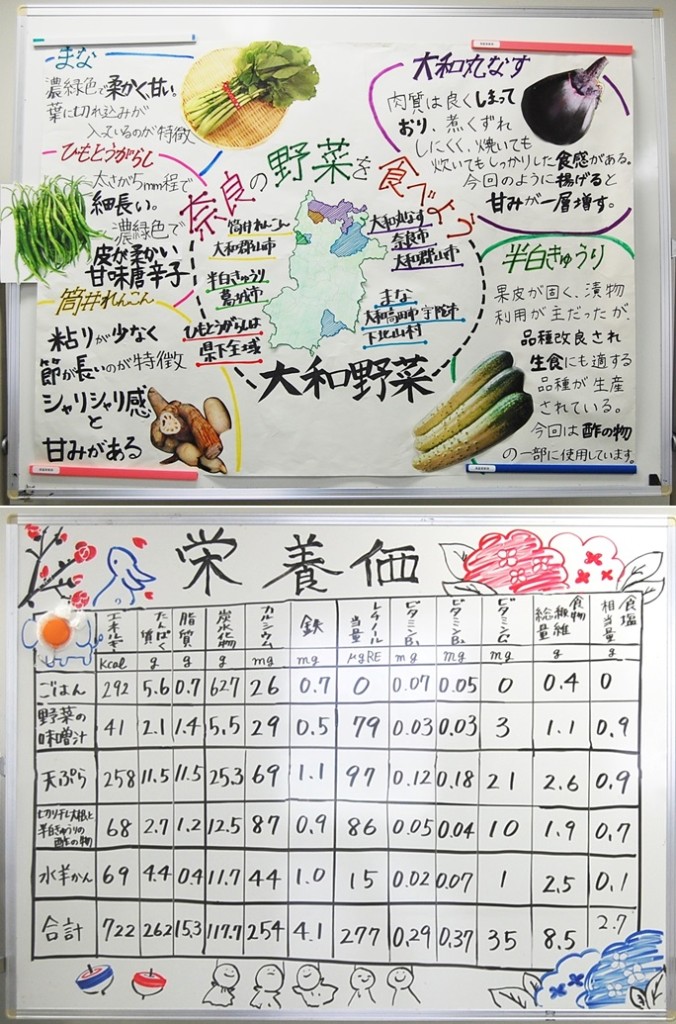 まな
濃緑色で柔かく甘い。
葉に切れ込みが
入っているのが特徴
ひもとうがらし
太さが5mm程で
細長い。
濃緑色で
皮が柔かい
甘味唐辛子
筒井れんこん
粘りが少なく
節が長いのが特徴
シャリシャリ感
と
甘みがある
奈良の野菜を食べよう
筒井れんこん
大和郡山市
半白きゅうり
葛城市
ひもとうがらしは
県下全域
大和丸なす
奈良市
大和郡山市
まな
大和高田市 宇陀市
下北山村
大和野菜
大和丸なす
肉質は良くしまって
おり、煮くずれ
しにくく、焼いても
炊いてもしっかりした食感がある。
今回のように揚げると
甘みが一層増す。
半白きゅうり
果皮が固く、漬物
利用が主だったが
品種改良され
生食にも適する
品種が生産
されている。
今回は酢の物
の一部に使用しています。
栄養価
エネルギー たんぱく質 脂質 炭水化物 カルシウム 鉄 レチノール当量 ビタミンB1 ビタミンB2 ビタミンC 食物繊維総量 食塩相当量
kcal g g g mg mg μgRE mg mg mg g g
ごはん 292 5.6 0.7 62.7 26 0.7 0 0.07 0.05 0 0.4 0
野菜の味噌汁 41 2.1 1.4 5.5 29 0.5 79 0.03 0.03 3 1.1 0.9
天ぷら 258 11.5 11.5 25.3 69 1.1 97 0.12 0.18 21 2.6 0.9
切り干し大根と半白きゅうりの酢の物 68 2.7 1.2 12.5 87 0.9 86 0.05 0.04 10 1.9 0.7
水羊かん 69 4.4 0.4 11.7 44 1.0 15 0.02 0.07 1 2.5 0.1
合計 722 26.2 15.3 117.7 254 4.1 277 0.29 0.37 35 8.5 2.7